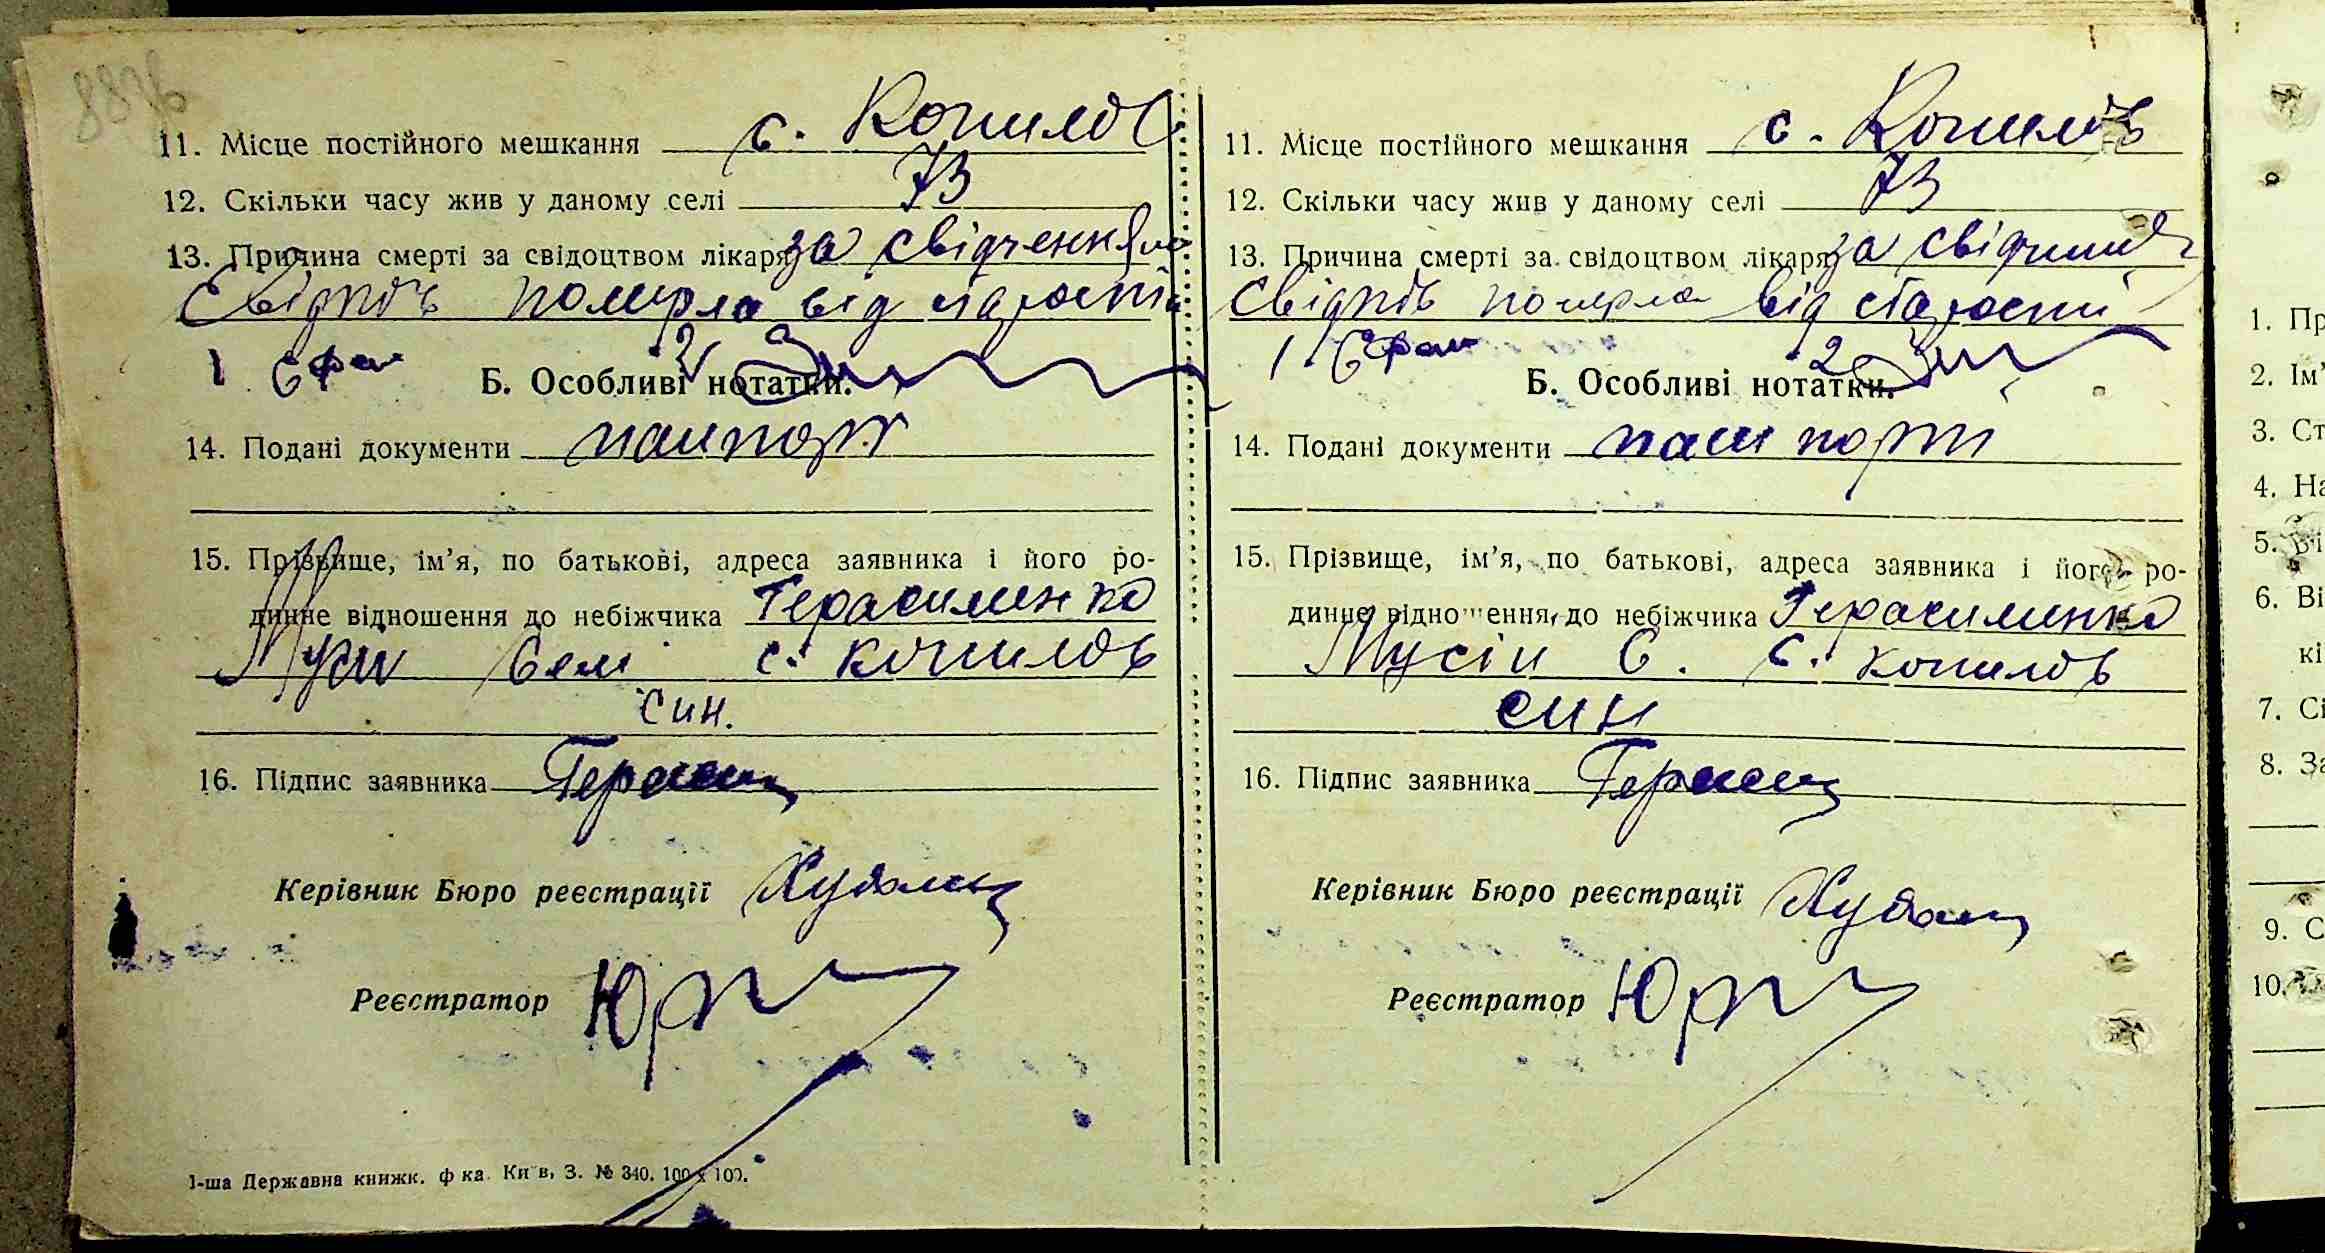 883б
11. Місце постійного мешкання с. Копилов
12. Скільки часу жив у даному селі 73
13. Причина смерті за свідоцтвом лікаря за свідченням
свідків померла від старости
1 2
Б. Особливі нотатки.
14. Подані документи пашпорт
15. Прізвище, ім’я, по батькові, адреса заявника і його ро-
динне відношення до небіжчика Герасименко
Мусій с. Копилов
син.
16. Підпис заявника Герасим
Керівник Бюро реєстрації
Реєстратор
1-ша Державна книжк. ф ка. Київ, З. № 340. 100 x 100.
11. Місце постійного мешкання с. Копилов
12. Скільки часу жив у даному селі 73
13. Причина смерті за свідоцтвом лікаря за свідченням
свідків померла від старости
1 2
Б. Особливі нотатки.
14. Подані документи пашпорт
15. Прізвище, ім’я, по батькові, адреса заявника і його ро-
динне відношення до небіжчика Герасименко
Мусій Є. с. Копилов
син
16. Підпис заявника Герасим
Керівник Бюро реєстрації
Реєстратор
1. Пр
2. Ім’
3. Ст
4. На
5. Ві
6. Ві
кі
7. Сі
8. За
9. С
10.